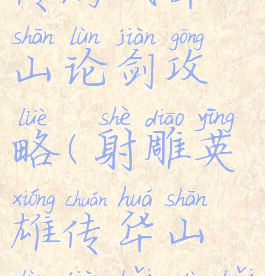 shān lùn jiàn gōng
山论剑攻
lüè shè diāo yīng
略(射雕英
xióng chuán huá shān
雄传华山